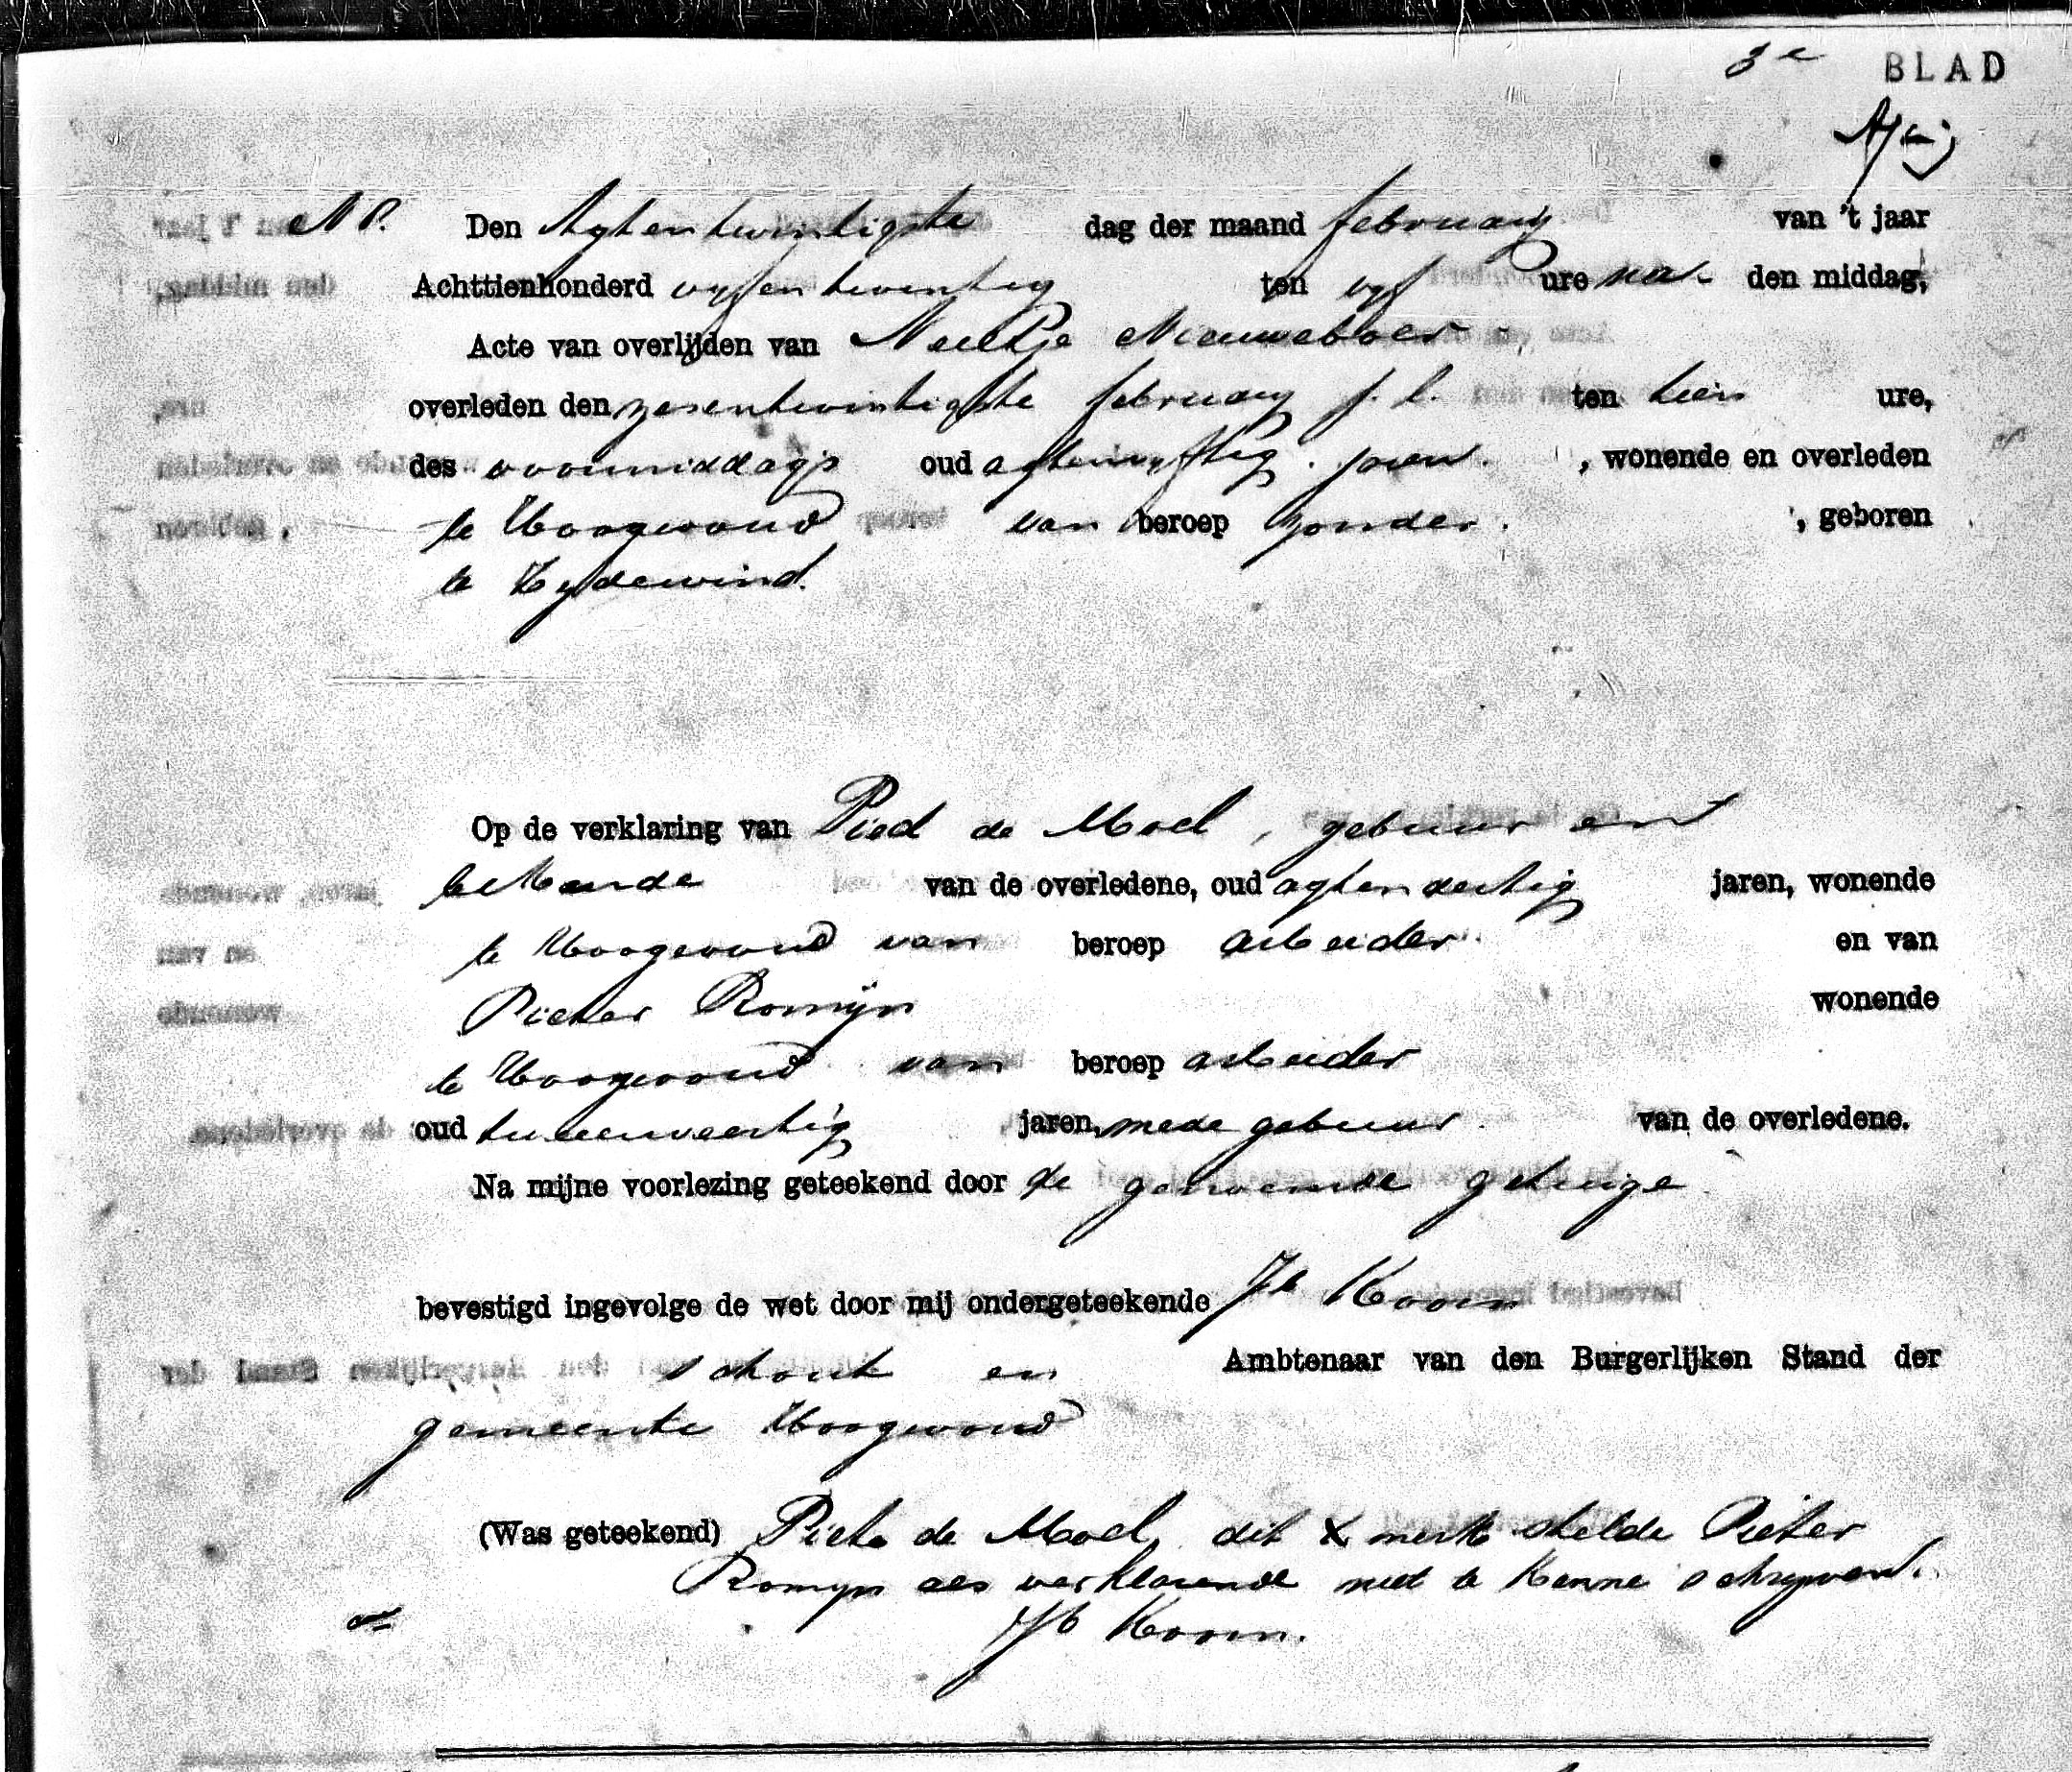 3e BLAD
No. Den Agtentwintigste dag der maand february van 't jaar
Achttienhonderd vyfentwintig ten vyf ure na den middag,
Acte van overlijden van Neeltje Nieuweboer
overleden den zesentwintigste february j.l. ten tien ure,
des voormiddags oud agtenvyftig jaren , wonende en overleden
te Hoogwoud van beroep zonder , geboren
te Zydewind.
Op de verklaring van Pied de Moel, gebuur en
bekende van de overledene, oud agtendertig jaren, wonende
te Hoogwoud van beroep arbeider en van
Pieter Romijn wonende
te Hoogwoud van beroep arbeider
oud tweeenveertig jaren, mede gebuur van de overledene.
Na mijne voorlezing geteekend door de genoemde getuige
bevestigd ingevolge de wet door mij ondergeteekende Jb Koorn
schout en Ambtenaar van den Burgerlijken Stand der
gemeente Hoogwoud
(Was geteekend) Piete de Moel, dit X merk stelde Pieter
Romyn als verklarende niet te kenne schryven.
Jb Koorn.